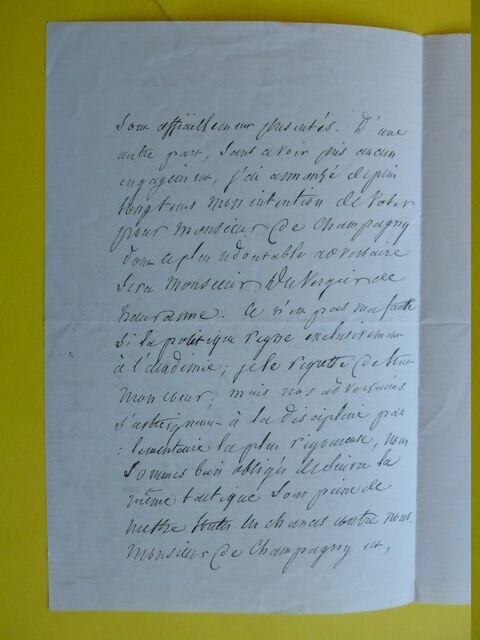 sont officiellement présentés. D'une
autre part, sans avoir pris aucun
engagement, j'ai annoncé depuis
longtems mon intention de voter
pour Monsieur de Champagny
dont le plus redoutable adversaire
sera Monsieur Duvergier de
hauranne. Ce n'est pas ma faute
si la politique règne exclusivement
à l'académie; je le regrette de tout
mon cœur; mais nos adversaires
s'astreignant à la discipline par
: lementaire la plus rigoureuse, nous
sommes bien obligés de suivre la
même tactique sous peine de
mettre toutes les chances contre nous.
Monsieur de Champagny est,